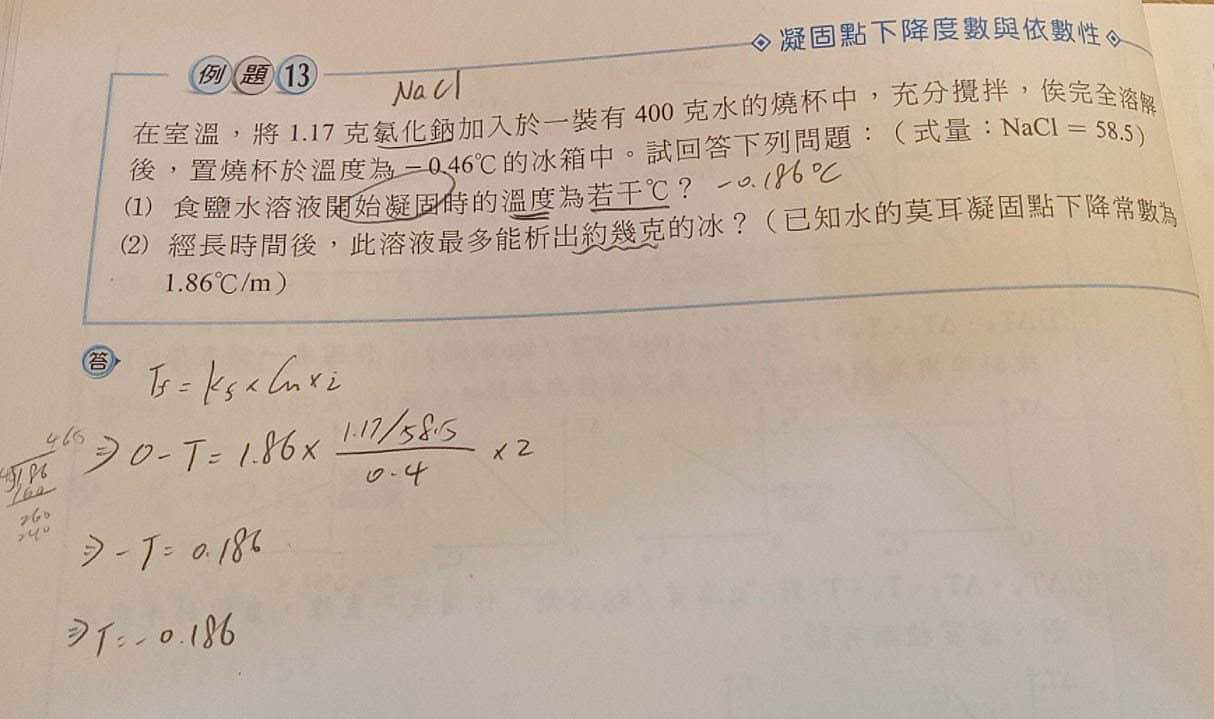 ◇凝固點下降度數與依數性◇
例題13
NaCl
在室溫，將 1.17 克氯化鈉加入於一裝有 400 克水的燒杯中，充分攪拌，俟完全溶解
後，置燒杯於溫度為 −0.46℃的冰箱中。試回答下列問題：（式量：NaCl = 58.5）
⑴ 食鹽水溶液開始凝固時的溫度為若干℃？ -0.186℃
⑵ 經長時間後，此溶液最多能析出約幾克的冰？（已知水的莫耳凝固點下降常數為
1.86℃/m）
答 Tf = kf × Cm × i
⇒ 0 - T = 1.86 × (1.17/58.5)/0.4 × 2
465
186
160
260
240
⇒ - T = 0.186
⇒ T = - 0.186